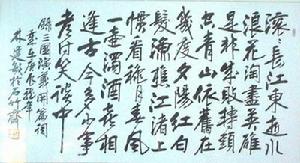 滚滚長江東逝水
浪花淘盡英雄
是非成敗轉頭
空青山依舊在
幾度夕陽紅白
髮漁樵江渚上
慣看秋月春風
一壺濁酒喜相
逢古今多少事
都付笑談中
錄三國演義開篇詞
庚辰龍年
於石竹齋